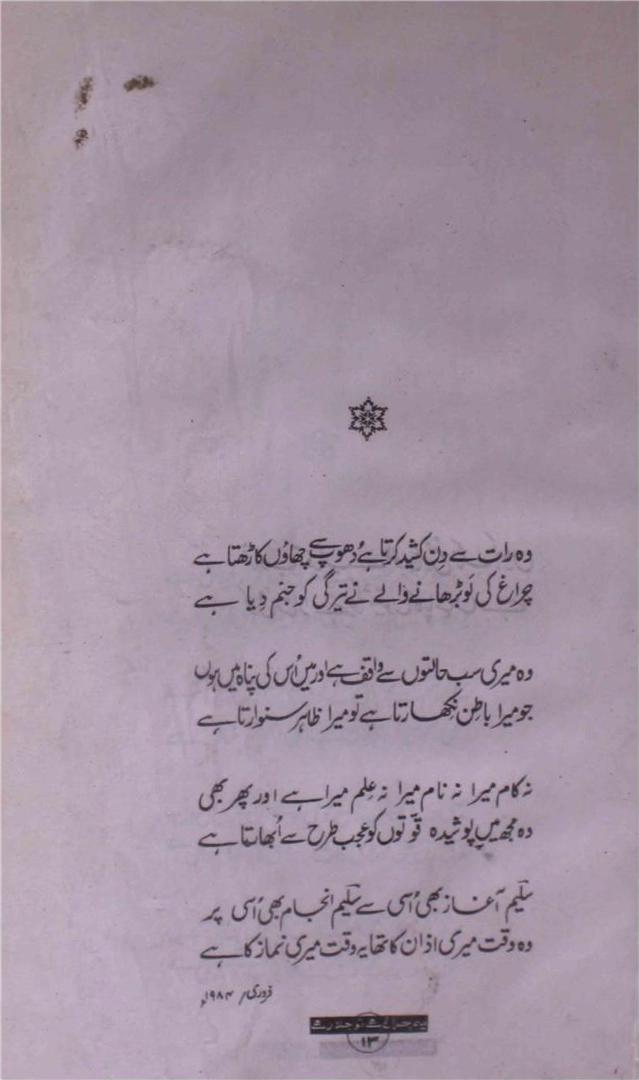 وہ رات سے دِن کشید کرتا ہے دُھوپ سے چھاؤں کاڑھتا ہے
چراغ کی لَو بڑھانے والے نے تیرگی کو جنم دِیا ہے
وہ میری سب حالتوں سے واقف ہے اور میں اُس کی پناہ میں ہوں
جو میرا باطِن نِکھارتا ہے تو میرا ظاہر سنوارتا ہے
نہ کام میرا نہ نام میرا نہ عِلم میرا ہے اور پھر بھی
وہ مجھ میں پوشیدہ قوّتوں کو عجب طرح سے اُبھارتا ہے
سلیمؔ آغاز بھی اُسی سے سلیمؔ انجام بھی اُسی پر
وہ وقت میری اذان کا تھا یہ وقت میری نماز کا ہے
فروری/ ۱۹۸۴ء
۱۳